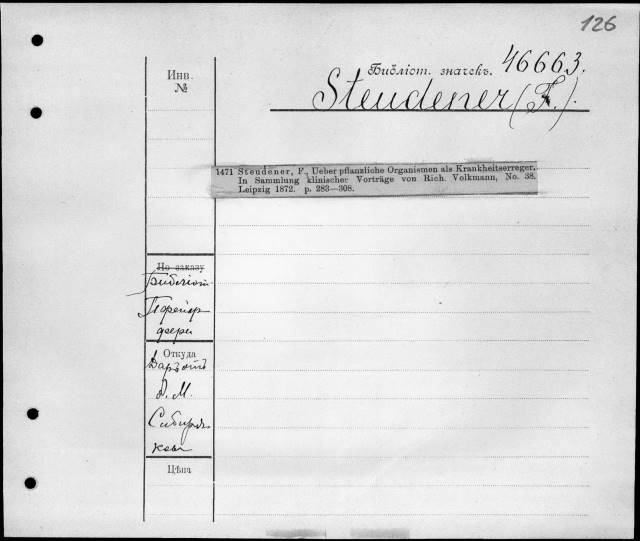 126
Инв.
№
Библіот. значекъ. 46663.
Steudener (F.).
1471 Steudener, F., Ueber pflanzliche Organismen als Krankheitserreger.
In Sammlung klinischer Vorträge von Rich. Volkmann, No. 38.
Leipzig 1872. p. 283—308.
По заказу
Библіот.
Откуда
Даръ отъ
Сибир
Цѣна